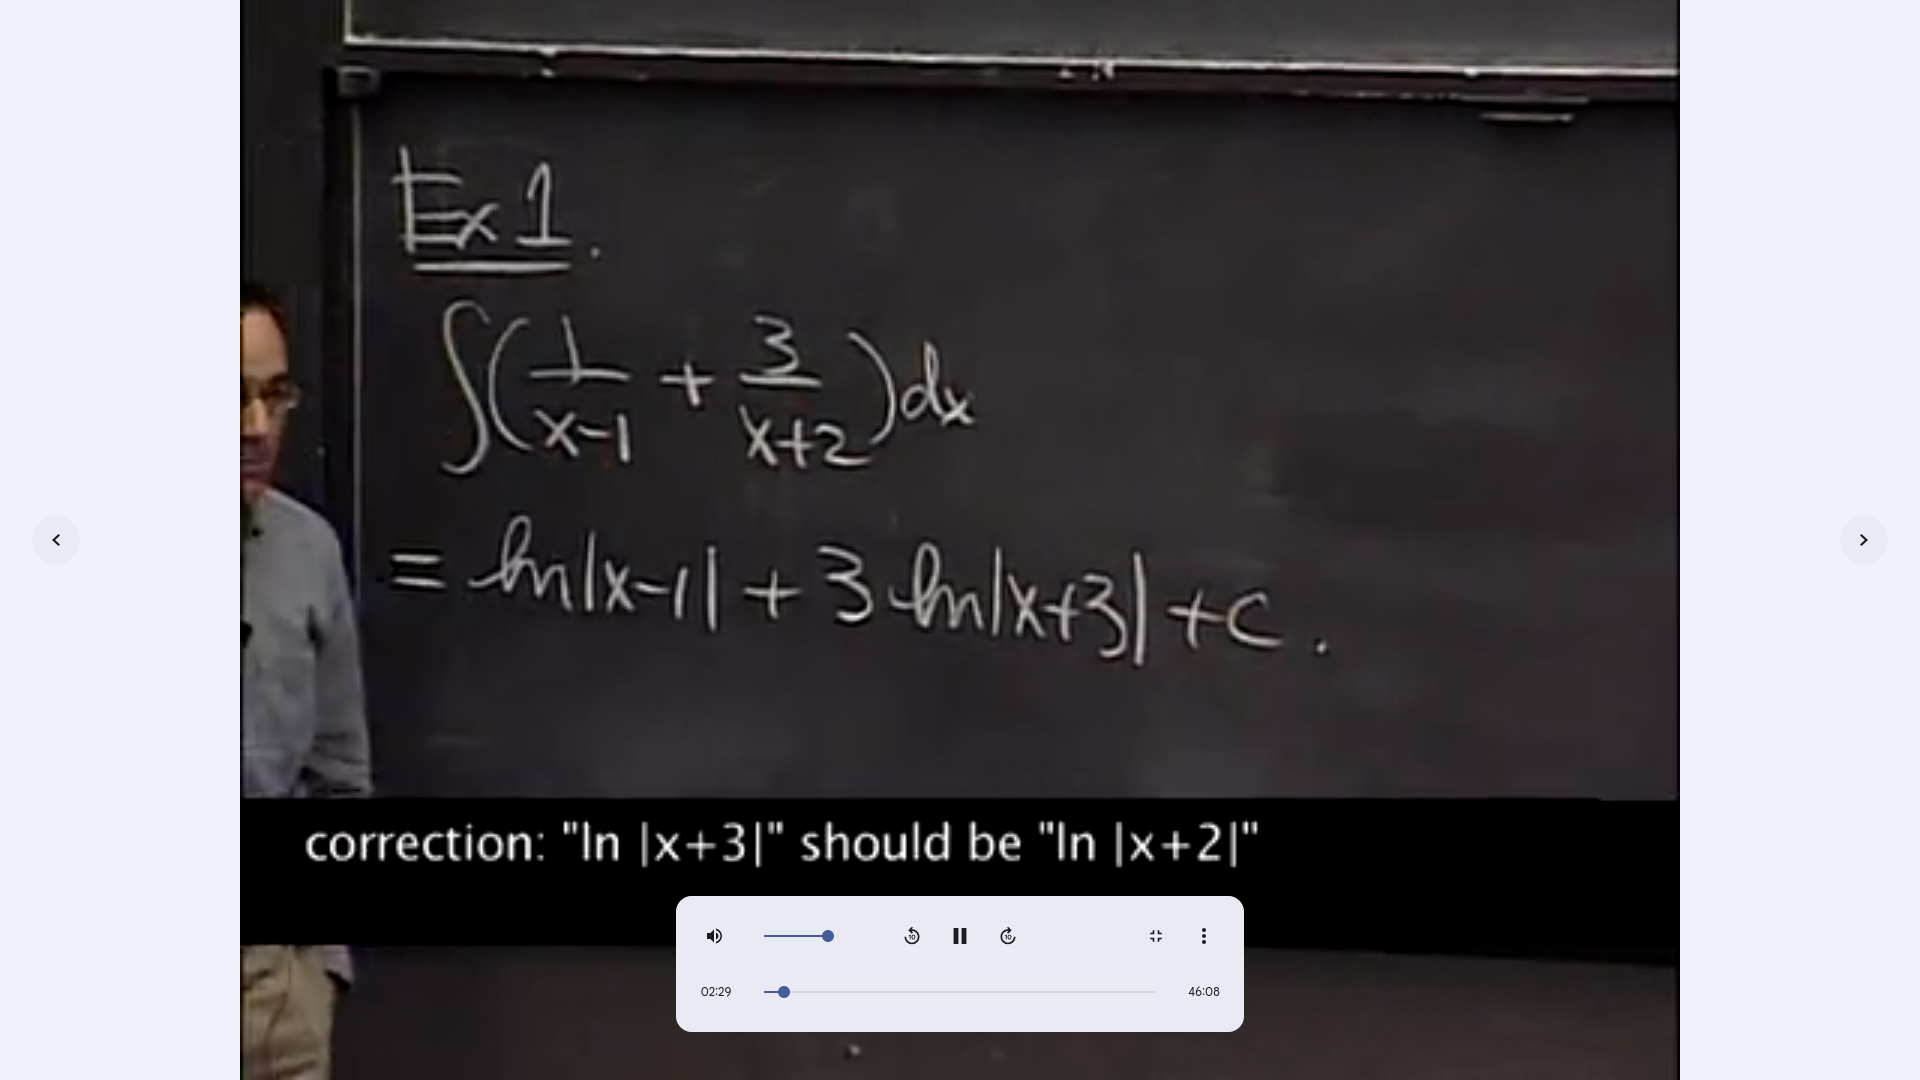 Ex 1.
∫(1/(x-1) + 3/(x+2))dx
= ln|x-1| + 3 ln|x+3| + c.
correction: "ln |x+3|" should be "ln |x+2|"
10 10
02:29 46:08